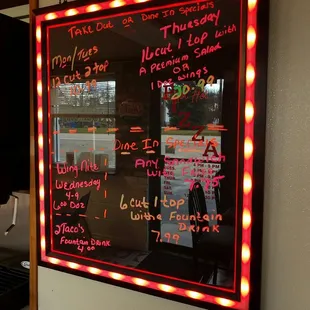 Take Out or Dine In Specials
Mon/Tues
12 cut 2 top
Thursday
16 cut 1 top with
A Premium Salad
OR
1 Doz Wings
20.99
Dine In Specials
Wing Nite
Wednesday
4-9
Doz
2 Taco's
Fountain Drink
4.00
Any
With
6 cut 1 top
With a Fountain
Drink
7.99